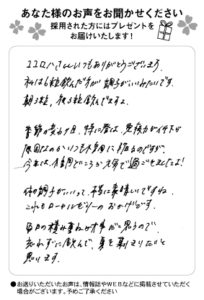 あなた様のお声をお聞かせください
採用された方にはプレゼントを
お届けいたします！
いつもありがとうございます。
私は6粒飲んだ方が調子がいいみたいです。
朝3粒、夜3粒飲んでますよ。
季節の変わり目、特に春は、免疫力が低下が
原因なのかいつも
今年は
元気で過ごせましたよ！
体の調子がいいって、本当に素晴しいですね。
これもローヤルゼリーのおかげです。
毎日の積み重ねが大事だと思うので、
忘れずに飲んで、夏を乗りきりたいと
思います。
●お送りいただいたお声は、情報誌やWEBなどに掲載させていただく
場合がございます。予めご了承ください